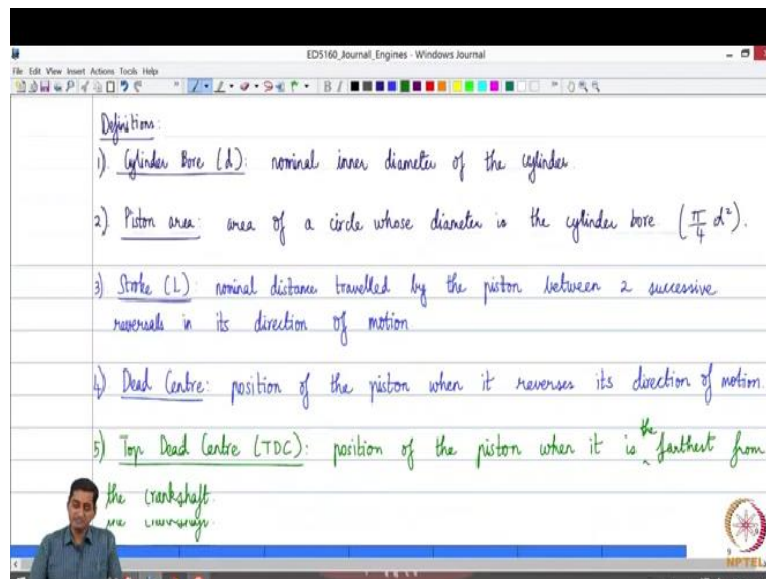 ED5160_Journal_Engines - Windows Journal
File Edit View Insert Actions Tools Help
B I
Definitions:
1). Cylinder Bore (d): nominal inner diameter of the cylinder
2). Piston area: area of a circle whose diameter is the cylinder bore (π/4 d²).
3). Stroke (L): nominal distance travelled by the piston between 2 successive
reversals in its direction of motion
4) Dead Centre: position of the piston when it reverses its direction of motion.
5) Top Dead Centre (TDC): position of the piston when it is the farthest from
the crankshaft.
NPTEL